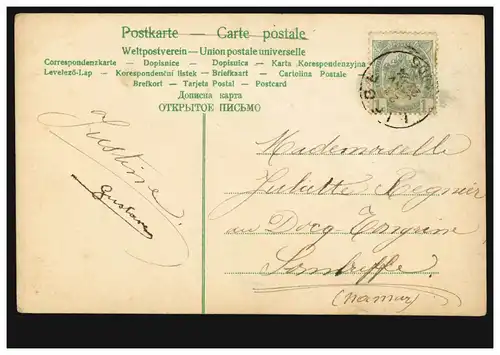 Postkarte — Carte postale
Weltpostverein – Union postale universelle
Correspondenzkarte — Dopisnice — Dopisnica — Karta Korespondenzyjna
Levelező-Lap — Korespondenční lístek – Briefkaart — Cartolina Postale
Brefkort – Tarjeta Postal – Postcard
Дописна карта
ОТКРЫТОЕ ПИСЬМО
Justine
Gustave
Mademoiselle
Juliette Regnier
au
Sombreffe
(Namur)